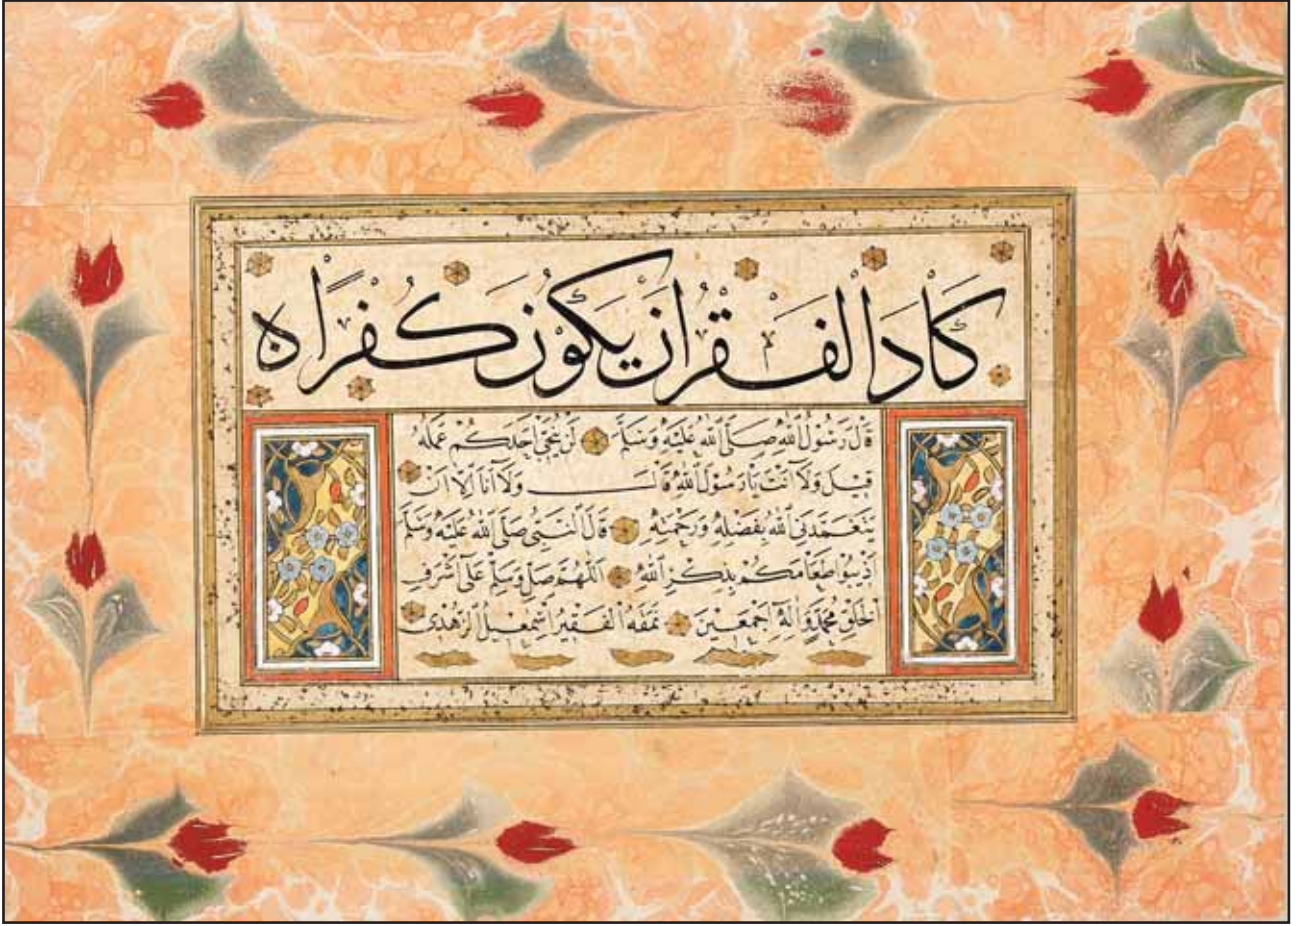 كَادَ الْفَقْرُ اَنْ يَكُونَ كُفْرًا ه
قَالَ رَسُولُ اللّٰهِ صَلَّى اللّٰهُ عَلَيْهِ وَسَلَّمَ لَنْ يُنْجِىَ اَحَدَكُمْ عَمَلُهُ
قِيلَ وَلَا اَنْتَ يَا رَسُولَ اللّٰهِ قَالَ وَلَا اَنَا اِلَّا اَنْ
يَتَغَمَّدَنِىَ اللّٰهُ بِفَضْلِهِ وَرَحْمَتِهِ قَالَ النَّبِىُّ صَلَّى اللّٰهُ عَلَيْهِ وَسَلَّمَ
اَذِيبُوا طَعَامَكُمْ بِذِكْرِ اللّٰهِ اَللّٰهُمَّ صَلِّ وَسَلِّمْ عَلٰى اَشْرَفِ
الْخَلْقِ مُحَمَّدٍ وَاٰلِهِ اَجْمَعِينَ نَمَقَهُ الْفَقِيرُ اِسْمٰعِيلُ الزُّهْدِى